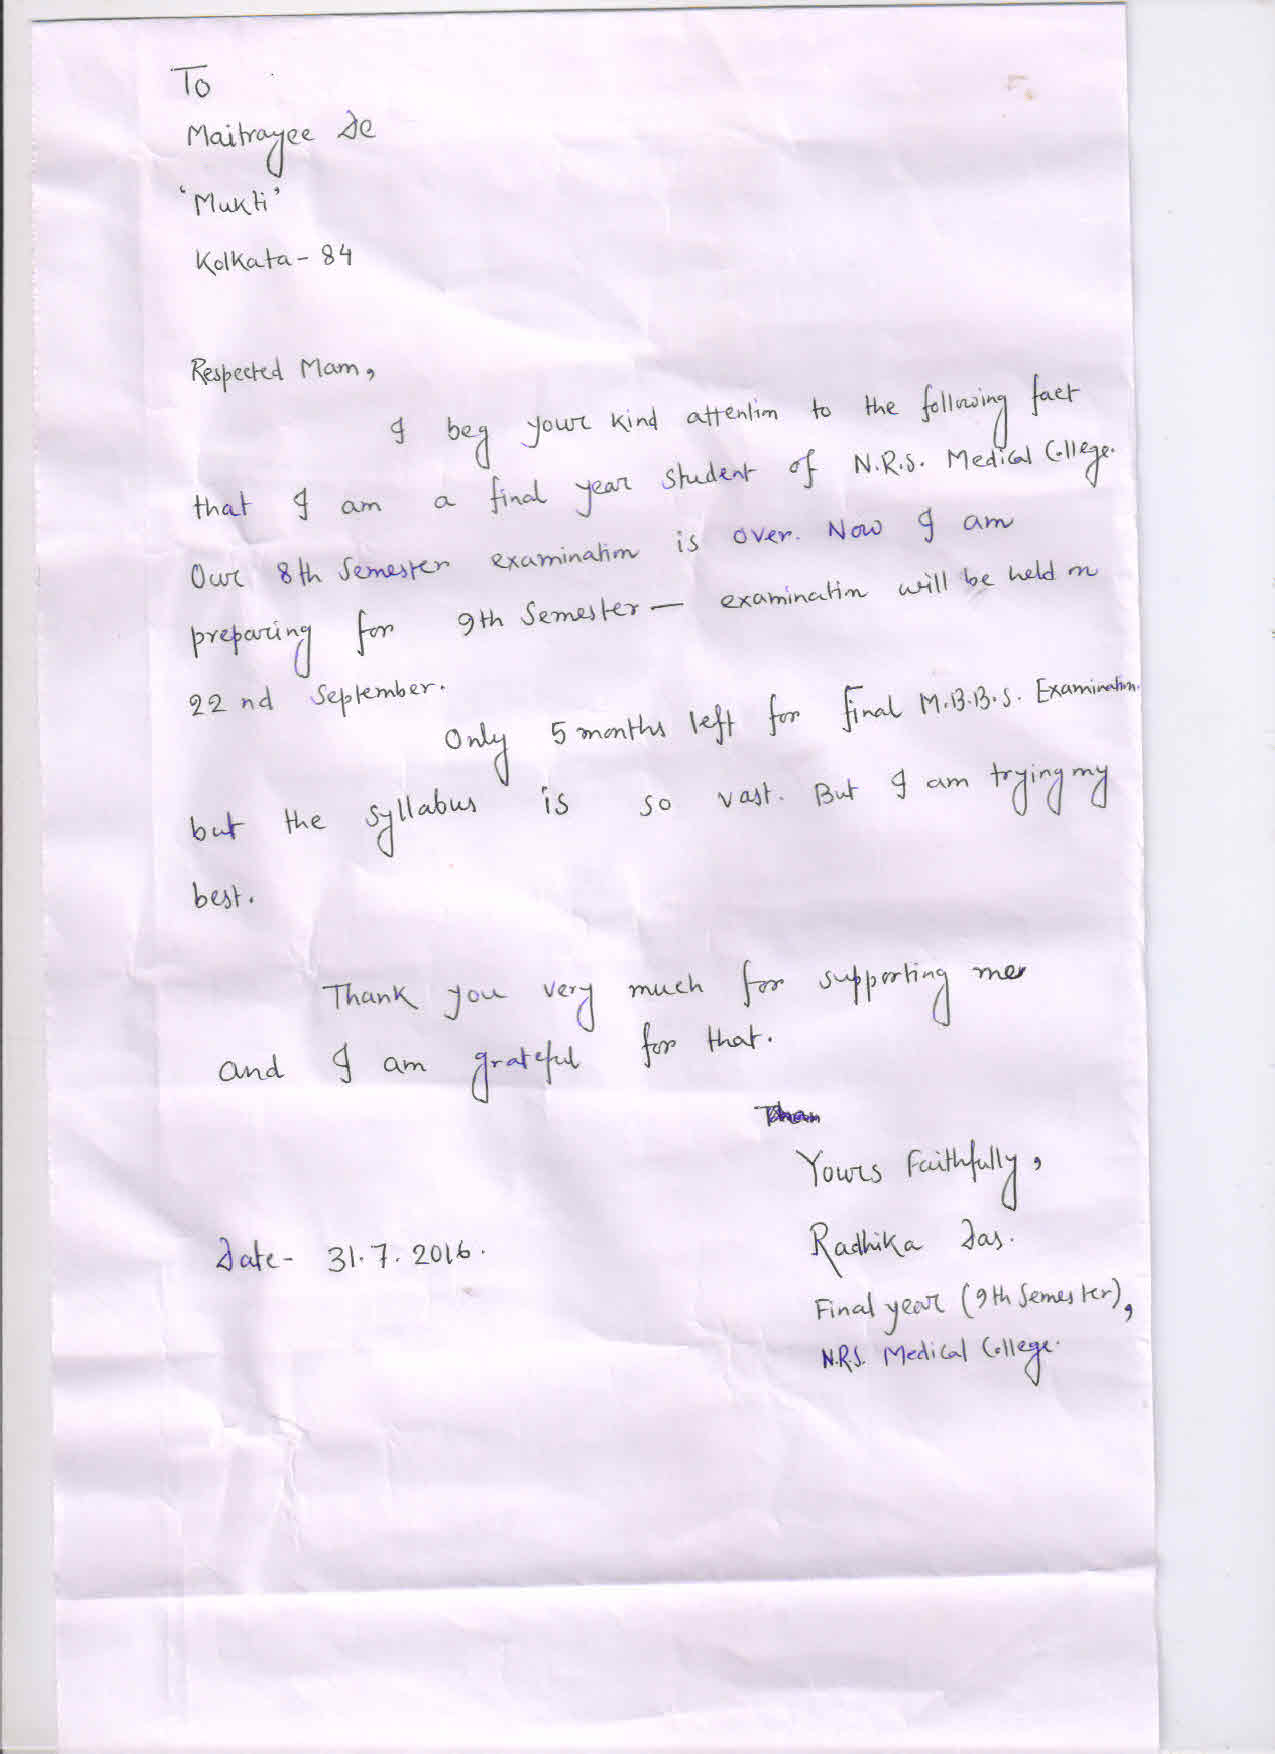 To
Maitrayee De
'Mukti'
Kolkata - 84
Respected Mam,
I beg your kind attention to the following fact
that I am a final year student of N.R.S. Medical College.
Our 8th Semester examination is over. Now I am
preparing for 9th Semester — examination will be held on
22 nd September.
Only 5 months left for final M.B.B.S. Examination.
but the syllabus is so vast. But I am trying my
best.
Thank you very much for supporting me
and I am grateful for that.
Yours Faithfully,
Radhika Das.
Date - 31.7.2016.
Final year (9th Semester),
N.R.S. Medical College.